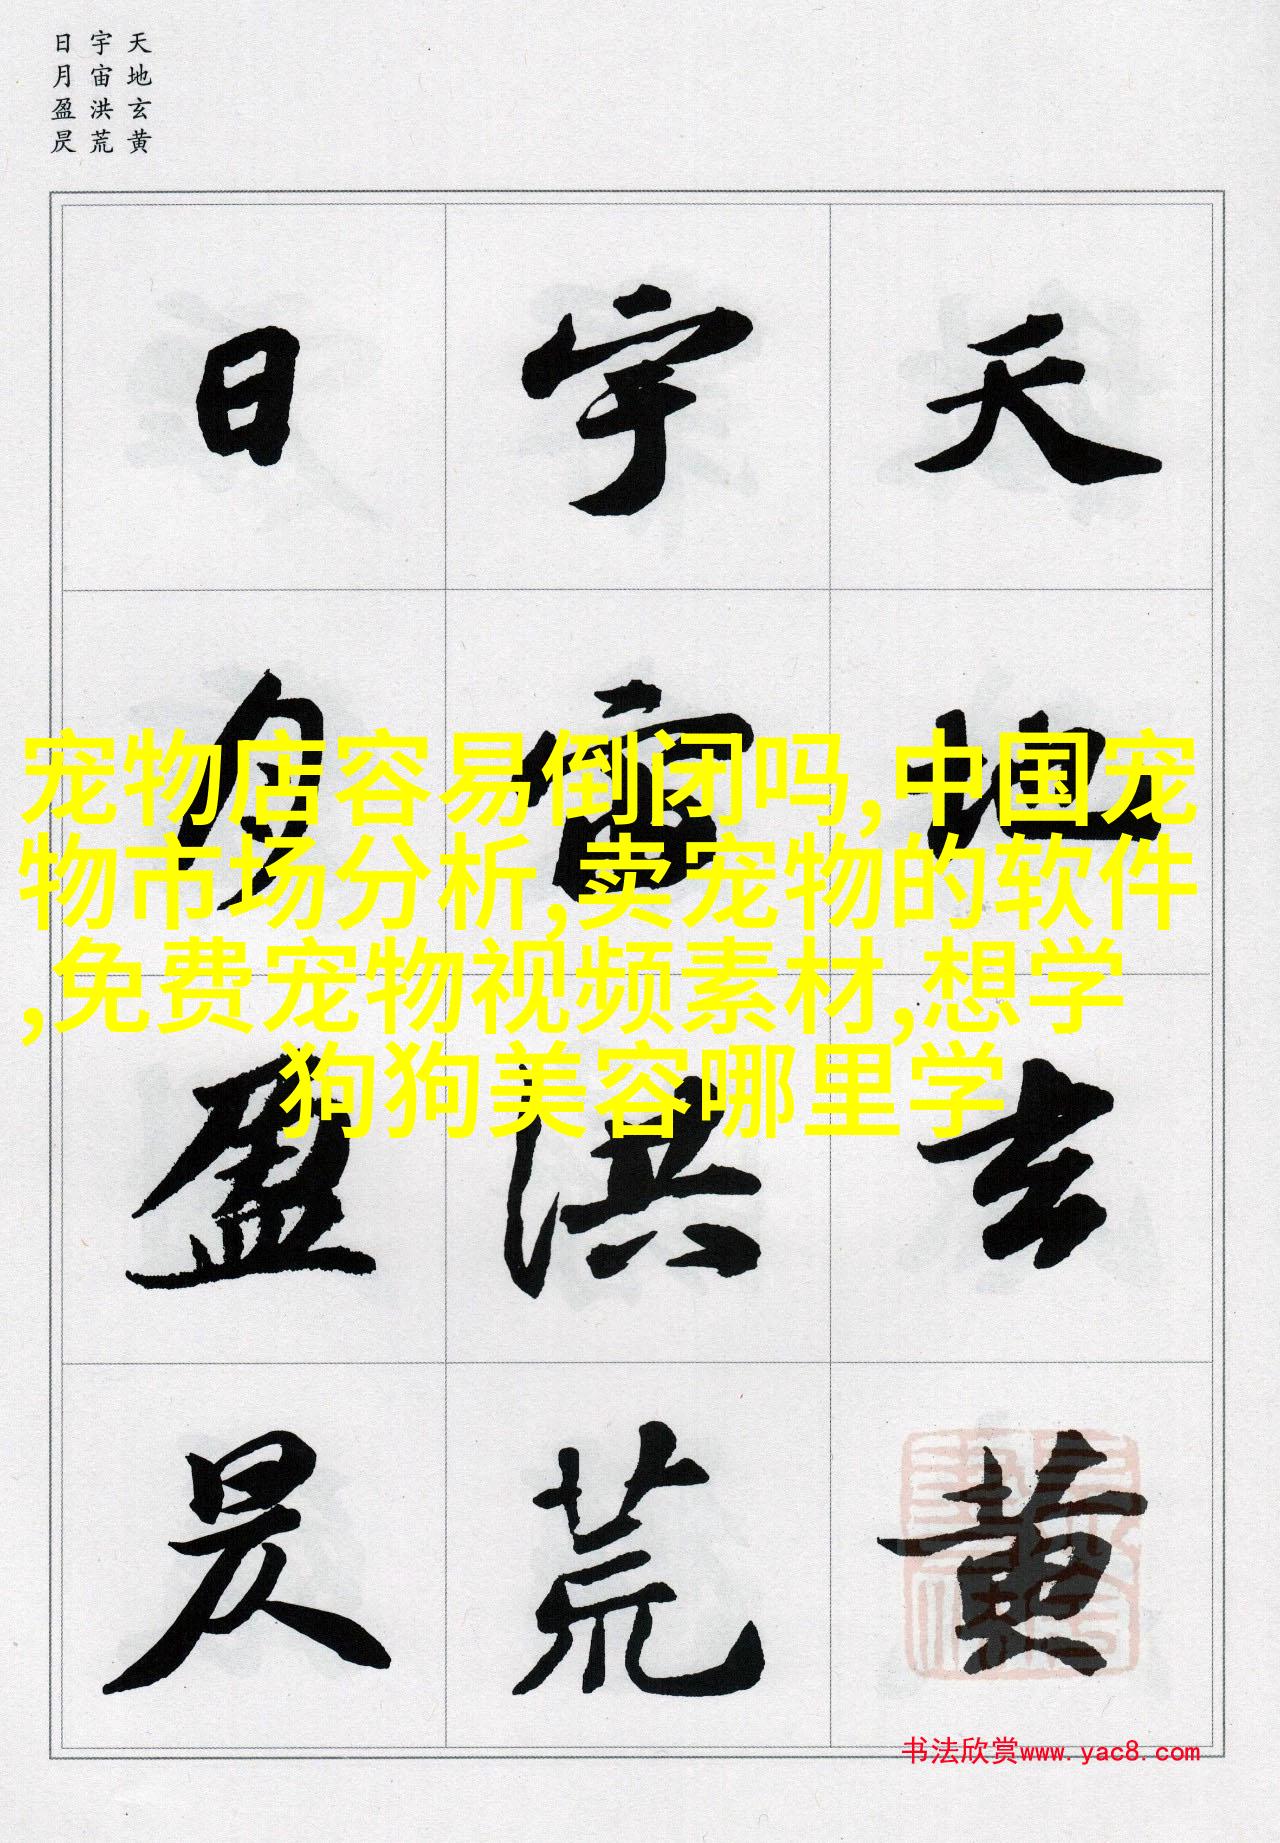 天地玄黄
宇宙洪荒
日月盈昃
天地玄黄
宇宙洪荒
日月盈昃
宠物店容易倒闭吗,中国宠
物市场分析,卖宠物的软件
,免费宠物视频素材,想学
狗狗美容哪里学
书法欣赏www.yac8.com